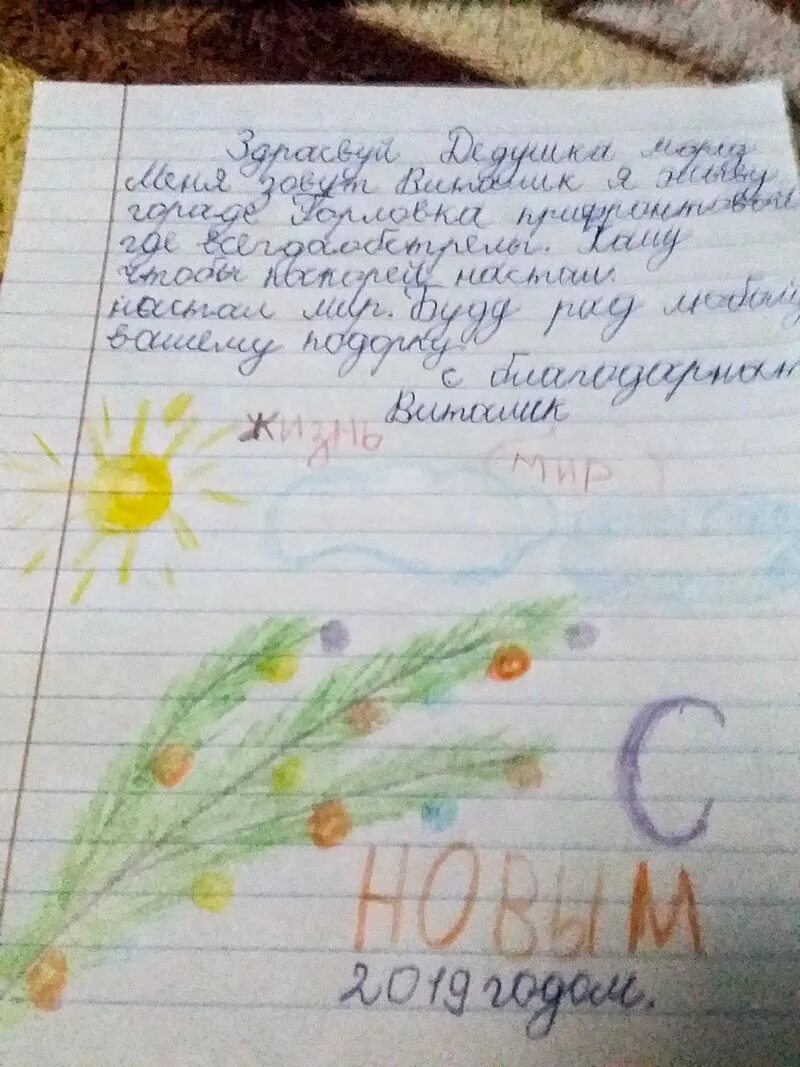 Здрасвуй Дедушка мороз
Меня зовут Виталик я живу
городе Горловка прифронтовой
где всегда обстрелы. Хачу
чтобы паскорей настал
настал мир. Буду рад любому
вашему подорку.
с благодарност
Виталик
жизнь
мир
С
НОВЫМ
2019 годом.